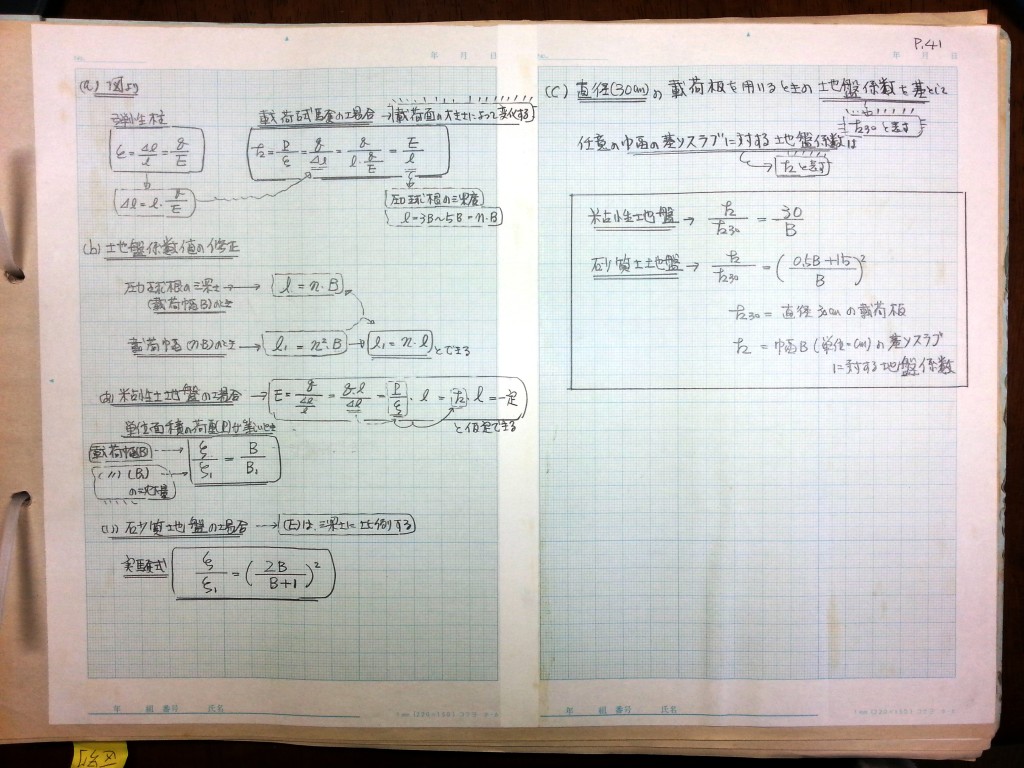 P.41
No.
年 月 日
(a) 図より
弾性柱
ε = Δl/l = q/E
Δl = l・q/E
載荷試験の場合 → 載荷面の大きさによって変化する
k = P/ξ = q/Δl = q/(l・q/E) = E/l
応力球根の深度
l = 3B〜5B = n・B
(b) 地盤係数値の修正
応力球根の深さ → l = n・B
(載荷幅B)のとき
載荷巾(n・B)のとき → l₁ = n²・B → l₁ = n・l とできる
粘性土地盤の場合 → E = q/(Δl/l) = q・l/Δl = P/ξ・l = k・l = 一定
と仮定できる
単位面積の荷重(P)が等しいとき
載荷幅(B)
(〃)(B₁)
の沈下量
ξ/ξ₁ = B/B₁
砂質地盤の場合 → (E)は、深さに比例する
実験式 ξ/ξ₁ = (2B/(B+1))²
年 組 番号 氏名
年 月 日
(C) 直径(30cm)の載荷板を用いるときの土地盤係数を基として
k30と表す
任意の巾Bの基ソスラブに対する地盤係数は
kと表す
粘性土地盤 → k/k30 = 30/B
砂質土地盤 → k/k30 = ((0.5B+15)/B)²
k30 = 直径30cmの載荷板
k = 巾B (単位=cm)の基ソスラブ
に対する地盤係数
年 組 番号 氏名